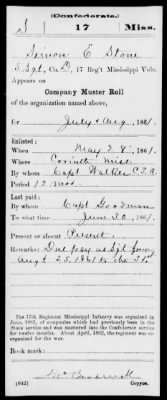 (Confederate.)
S 17 Miss.
Simeon E Stone
5 Sgt, Co. , 17 Reg't Mississippi Vols.
Appears on
Company Muster Roll
of the organization named above,
for July & Aug, 1861.
Enlisted:
When May 28, 1861.
Where Corinth Miss
By whom Capt Walker C.S.A.
Period 12 mos
Last paid:
By whom Capt Goodman
To what time June 30, 1861.
Present or absent Present
Remarks: Due pay as Sgt from
Aug 25 1861 to the 31st
The 17th Regiment Mississippi Infantry was organized in
June, 1861, of companies which had previously been in the
State service and was mustered into the Confederate service
for twelve months. About April, 1862, the regiment was
re-organized.
Book mark:
(642) Copyist.